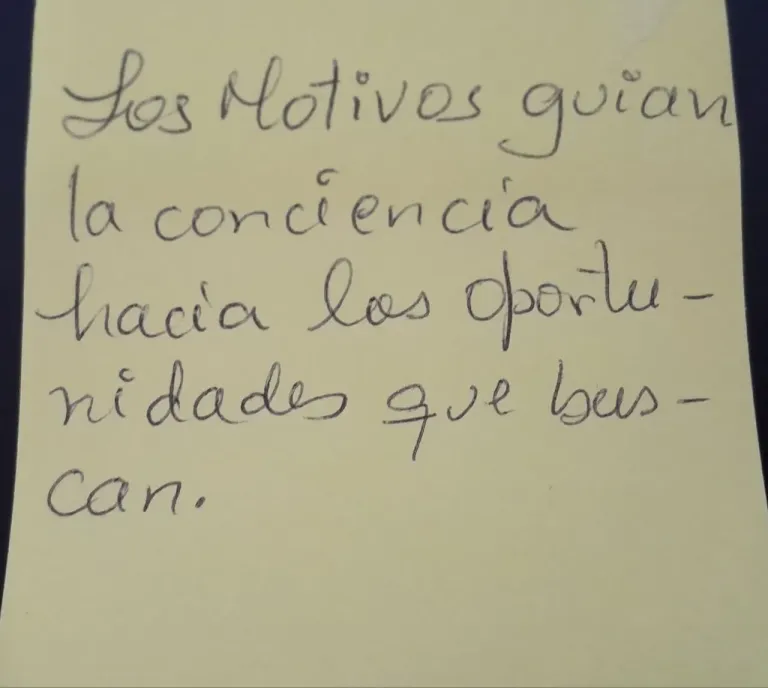 Los Motivos guian
la conciencia
hacia las oportu-
nidades que bus-
can.